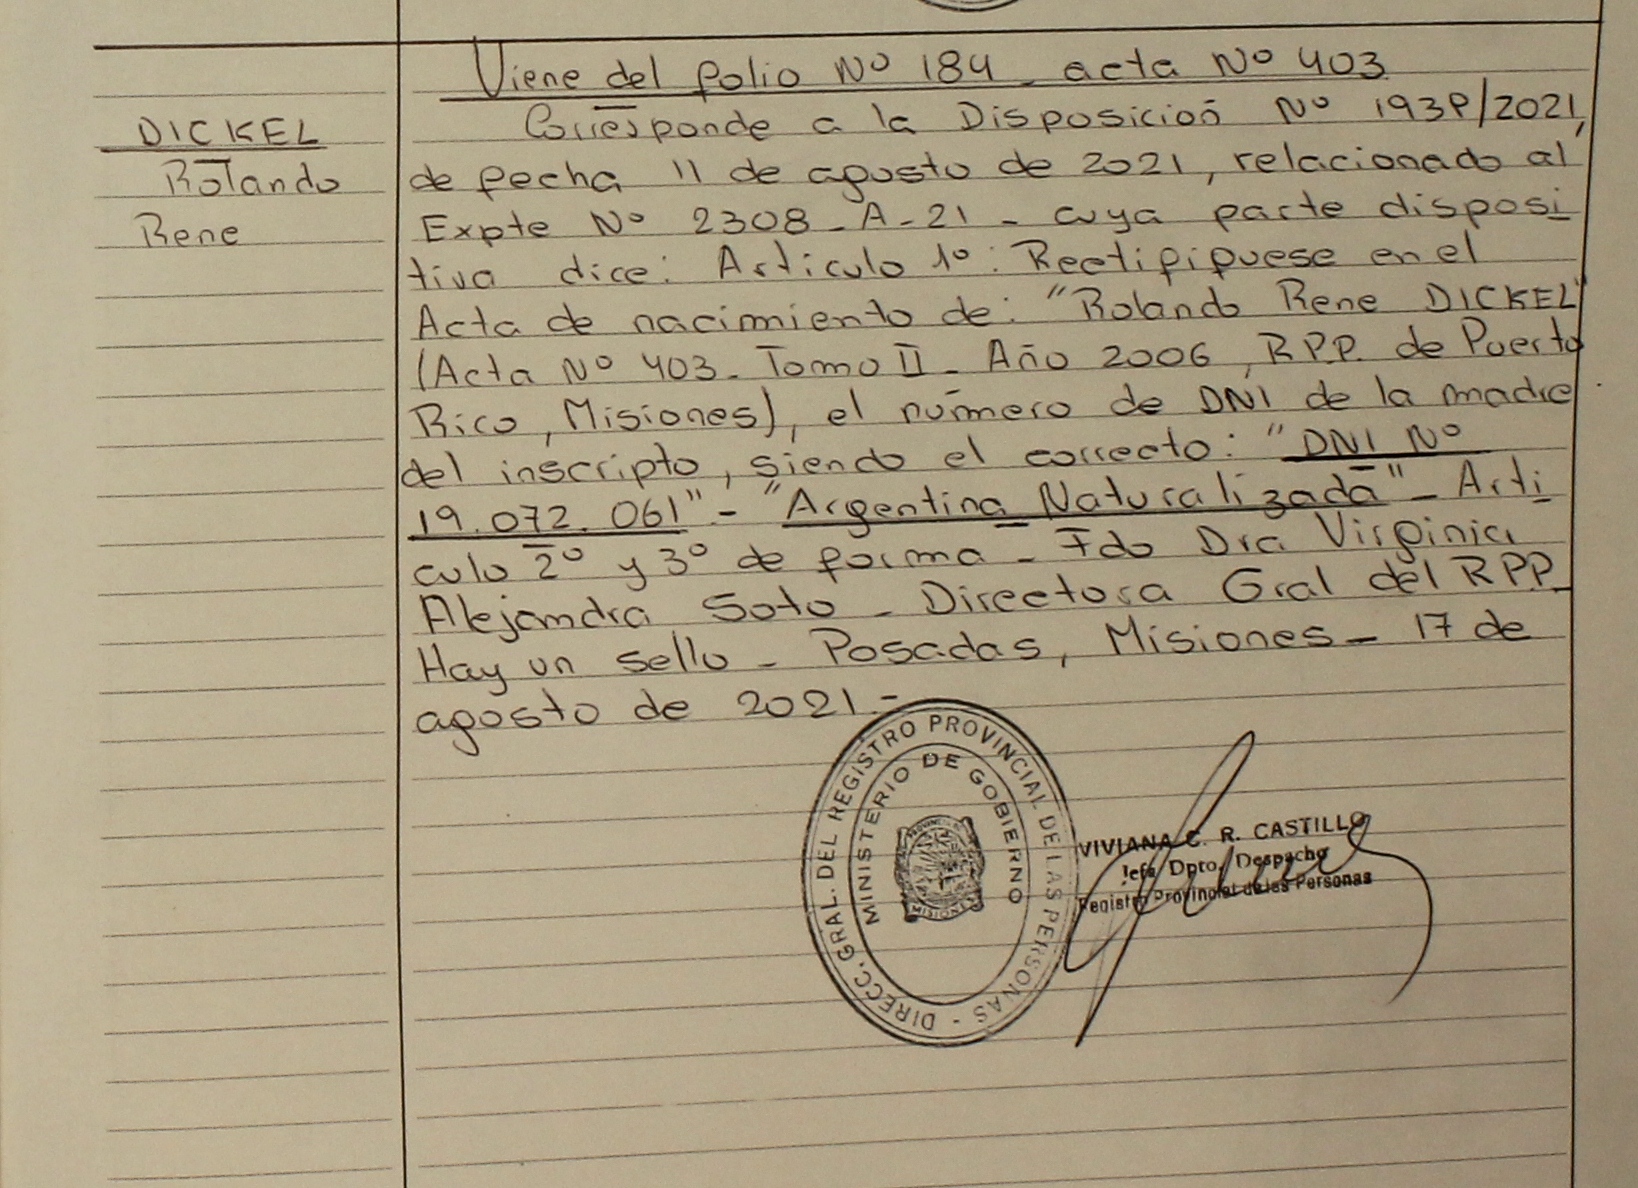 Viene del folio Nº 184 - acta Nº 403
DICKEL
Rolando
Rene
Corresponde a la Disposición Nº 1938/2021,
de fecha 11 de agosto de 2021, relacionado al
Expte Nº 2308 - A - 21 - cuya parte disposi
tiva dice: Articulo 1º: Rectifiquese en el
Acta de nacimiento de: "Rolando Rene DICKEL"
(Acta Nº 403 - Tomo II - Año 2006, R.P.P. de Puerto
Rico, Misiones), el número de DNI de la madre
del inscripto, siendo el correcto: "DNI Nº
19.072.061" - "Argentina Naturalizada" - Arti
culo 2º y 3º de forma - Fdo Dra Virginia
Alejandra Soto - Directora Gral del R.P.P.
Hay un sello - Posadas, Misiones - 17 de
agosto de 2021.-
DIRECC. GRAL. DEL REGISTRO PROVINCIAL DE LAS PERSONAS -
MINISTERIO DE GOBIERNO
MISIONES
VIVIANA C. R. CASTILLO
Jefa Dpto. Despacho
Registro Provincial de las Personas